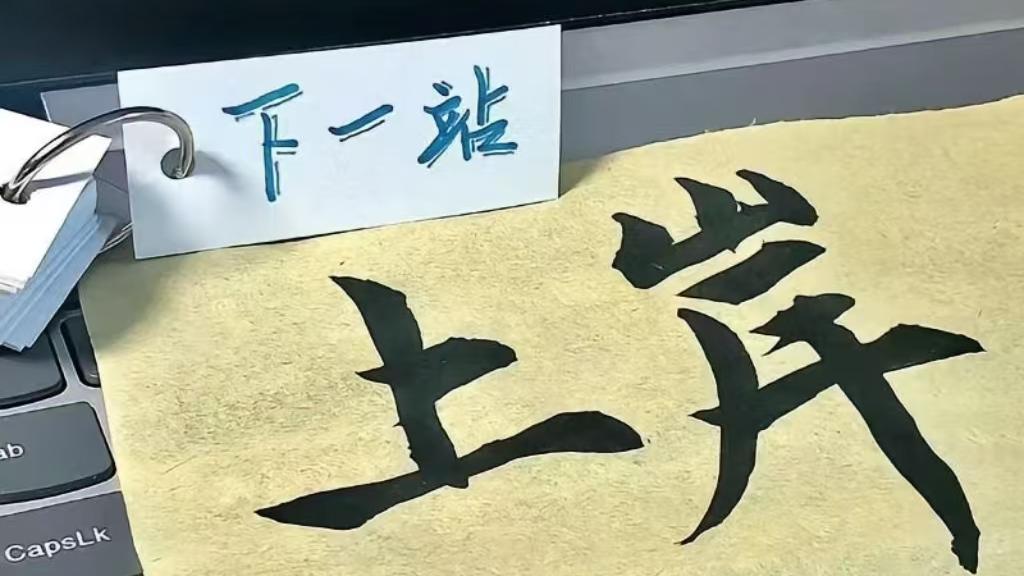 下一站
上岸
ab
CapsLk